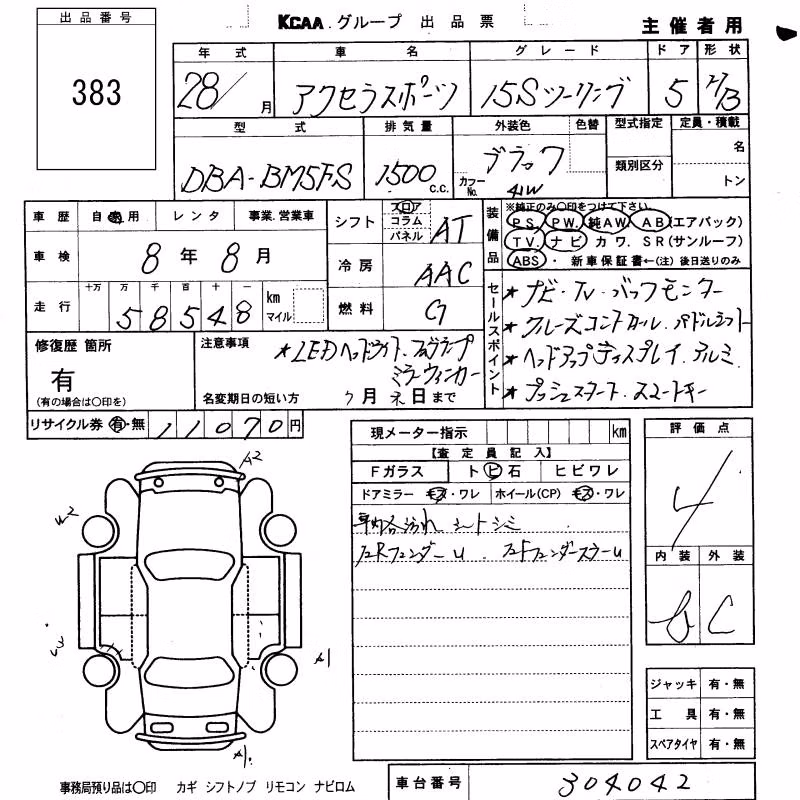 出品番号
383
KCAA.グループ 出品票
主催者用
年式 車名 グレード ドア 形状
28/ 月 アクセラスポーツ 15Sツーリング 5 H/B
型式 排気量 外装色 色替 型式指定 定員・積載
DBA-BM5FS 1500 c.c. ブラック カラーNo. 41W 類別区分 名
トン
車歴 自家用 レンタ 事業.営業車
車検 8年8月
走行 十万 万 千 百 十 一 km マイル
58548
シフト フロア コラム パネル AT
冷房 AAC
燃料 G
装備品 ※純正のみ○印をつけて下さい。
PS. PW. 純AW. AB(エアバック)
TV. ナビ カワ. SR(サンルーフ)
ABS ・ 新車保証書←(注)後日送りのみ
セールスポイント
★ナビ・TV・バックモニター
★クルーズコントロール.パドルシフト
★ヘッドアップディスプレイ.アルミ
★プッシュスタート.スマートキー
修復歴 箇所
有
(有の場合は○印を)
注意事項
★LEDヘッドライト.フォグランプ
ミラーウィンカー
名変期日の短い方 月 日まで
リサイクル券 有・無 11070円
現メーター指示 km
【査定員記入】
Fガラス トビ石 ヒビワレ
ドアミラー キズ・ワレ ホイール(CP) キズ・ワレ
車内各汚れ シートシミ
左RフェンダーU . 左FフェンダーステーU
評価点
4
内装 外装
B C
A2
W2
A1
A1
ジャッキ 有・無
工具 有・無
スペアタイヤ 有・無
事務局預り品は○印 カギ シフトノブ リモコン ナビロム
車台番号 304042